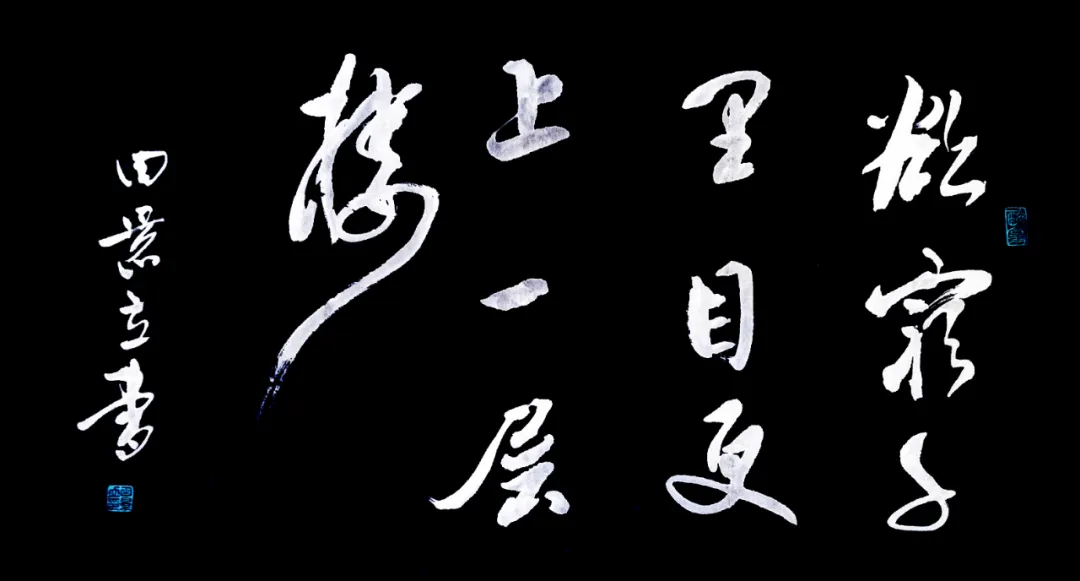 欲穷千
里目更
上一层
楼
田景立书